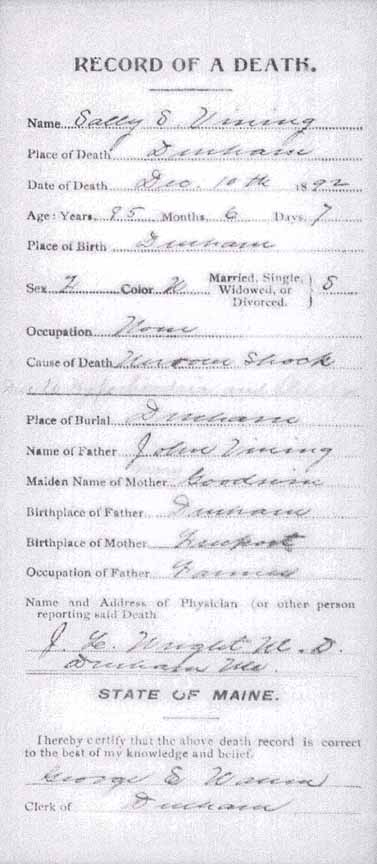 RECORD OF A DEATH.
Name Sally S. Vining
Place of Death Durham
Date of Death Dec. 10th 1892
Age: Years, 85 Months, 6 Days, 7
Place of Birth Durham
Sex F Color W Married, Single, Widowed, or Divorced. } S
Occupation None
Cause of Death Nervous Shock
Place of Burial Durham
Name of Father John Vining
Maiden Name of Mother Goodwin
Birthplace of Father Durham
Birthplace of Mother Freeport
Occupation of Father Farmer
Name and Address of Physician (or other person
reporting said Death
J. L. Wright M.D.
Durham Me.
STATE OF MAINE.
I hereby certify that the above death record is correct
to the best of my knowledge and belief.
George E
Clerk of Durham